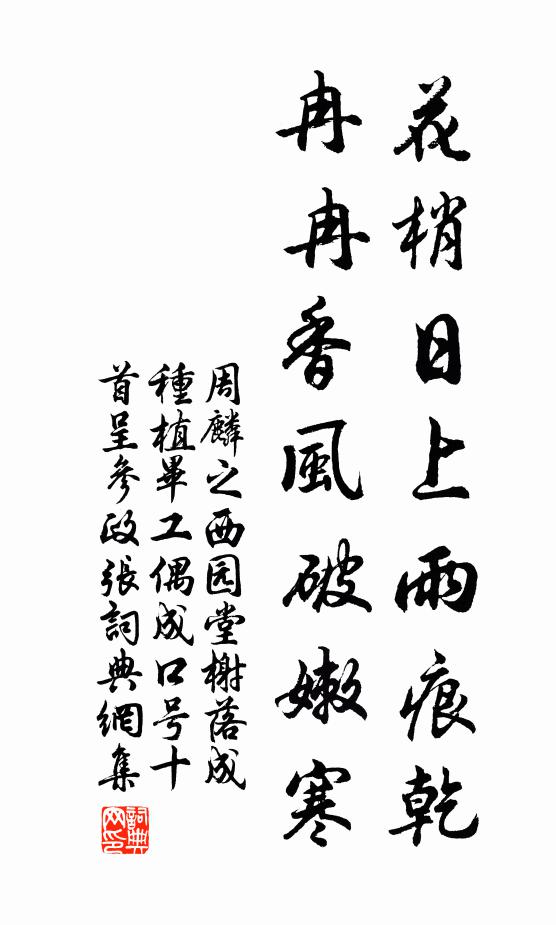 花梢日上雨痕乾
冉冉香風破嫩寒
周麟之西园堂榭落成
種植畢工偶成口号十
首呈參政張詞典網集
詞典网印